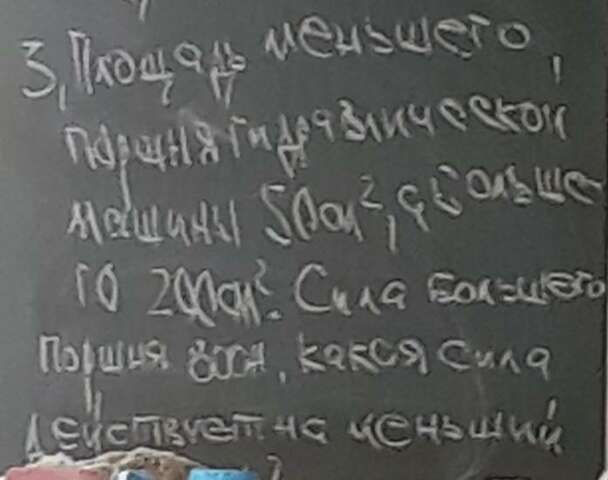 3, Площадь меньшего,
поршня гидравлической
машины 50см², а больше
го 200см². Сила большего
поршня 800Н, какая сила
действует на меньший
?